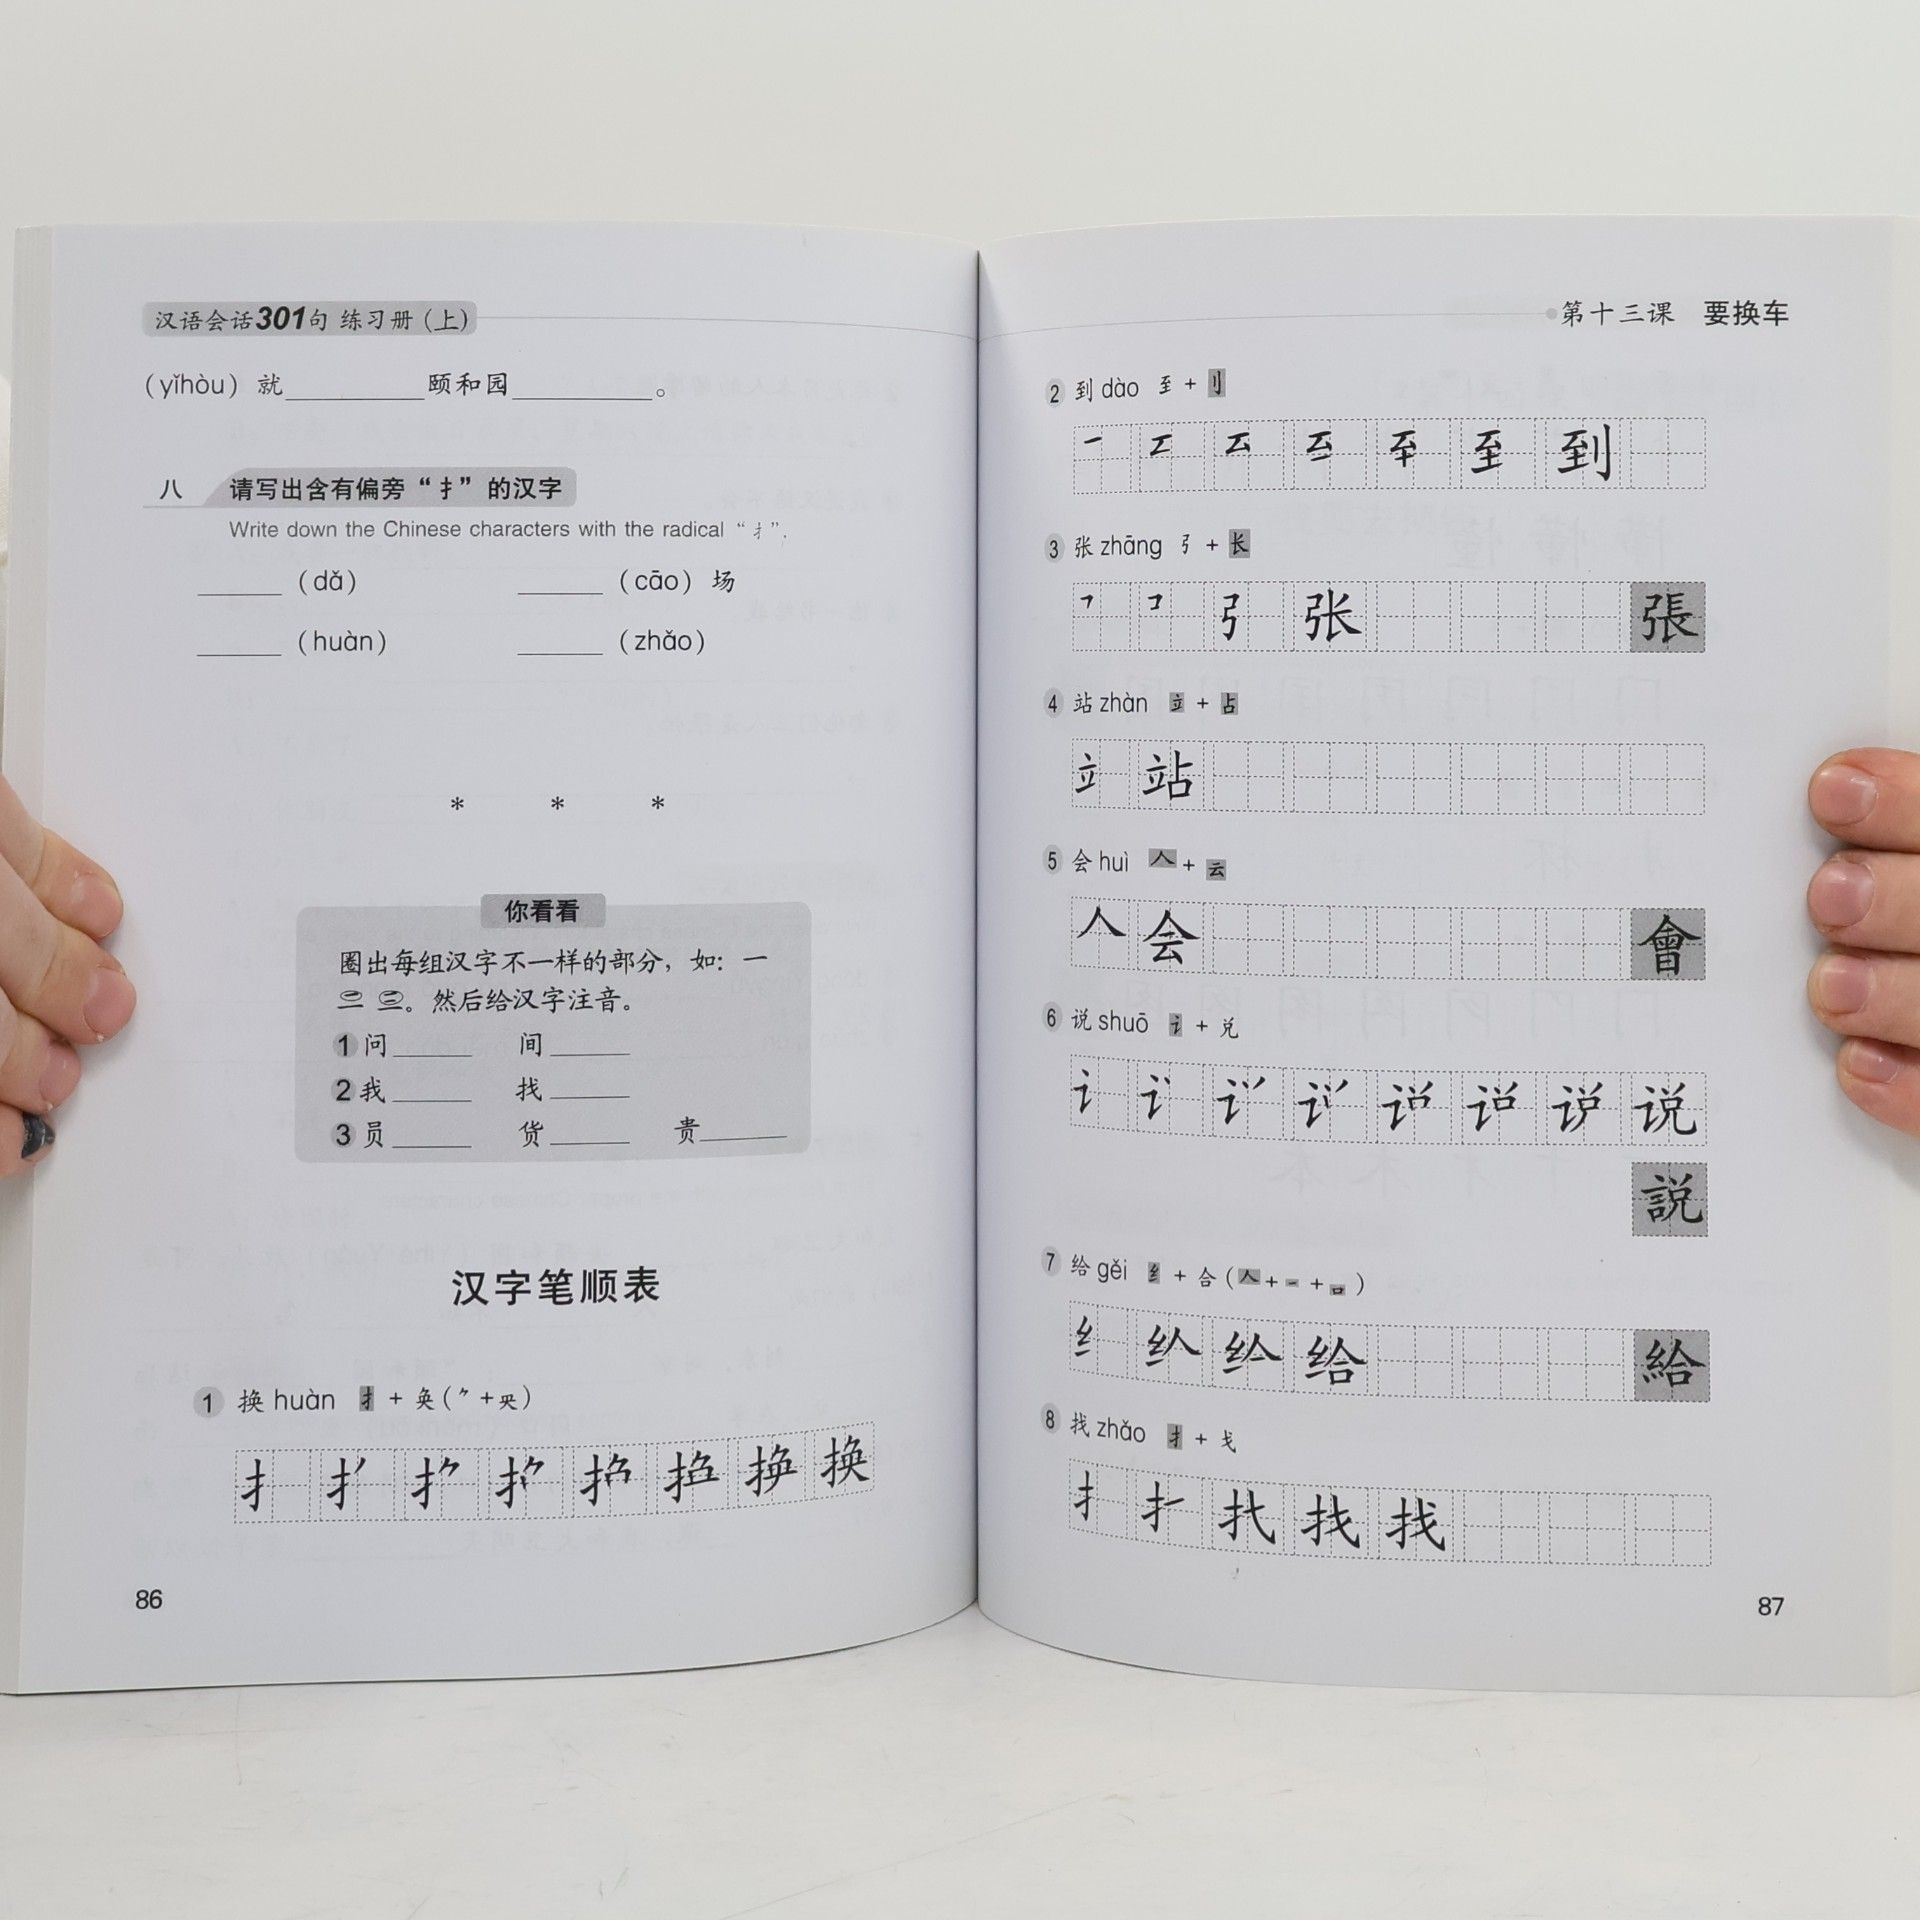 汉语会话301句 练习册（上）
（yǐhòu）就________颐和园________。
八 请写出含有偏旁“扌”的汉字
Write down the Chinese characters with the radical “扌”.
______（dǎ） ______（cāo）场
______（huàn） ______（zhǎo）
* * *
你看看
圈出每组汉字不一样的部分，如：一
二 三。然后给汉字注音。
1 问______ 间______
2 我______ 找______
3 员______ 货______ 贵______
汉字笔顺表
1 换 huàn 扌 + 奂（⺈ + 央）
扌 换
86
第十三课 要换车
2 到 dào 至 + 刂
一 至 到
3 张 zhāng 弓 + 长
弓 张 張
4 站 zhàn 立 + 占
立 站
5 会 huì 人 + 云
人 会 會
6 说 shuō 讠 + 兑
讠 说
説
7 给 gěi 纟 + 合（人 + 一 + 口）
纟 给 給
8 找 zhǎo 扌 + 戈
扌 找
87